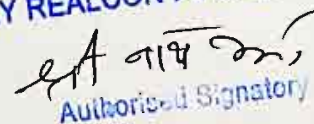 Y REALCON
श्री नाथ
Authorised Signatory